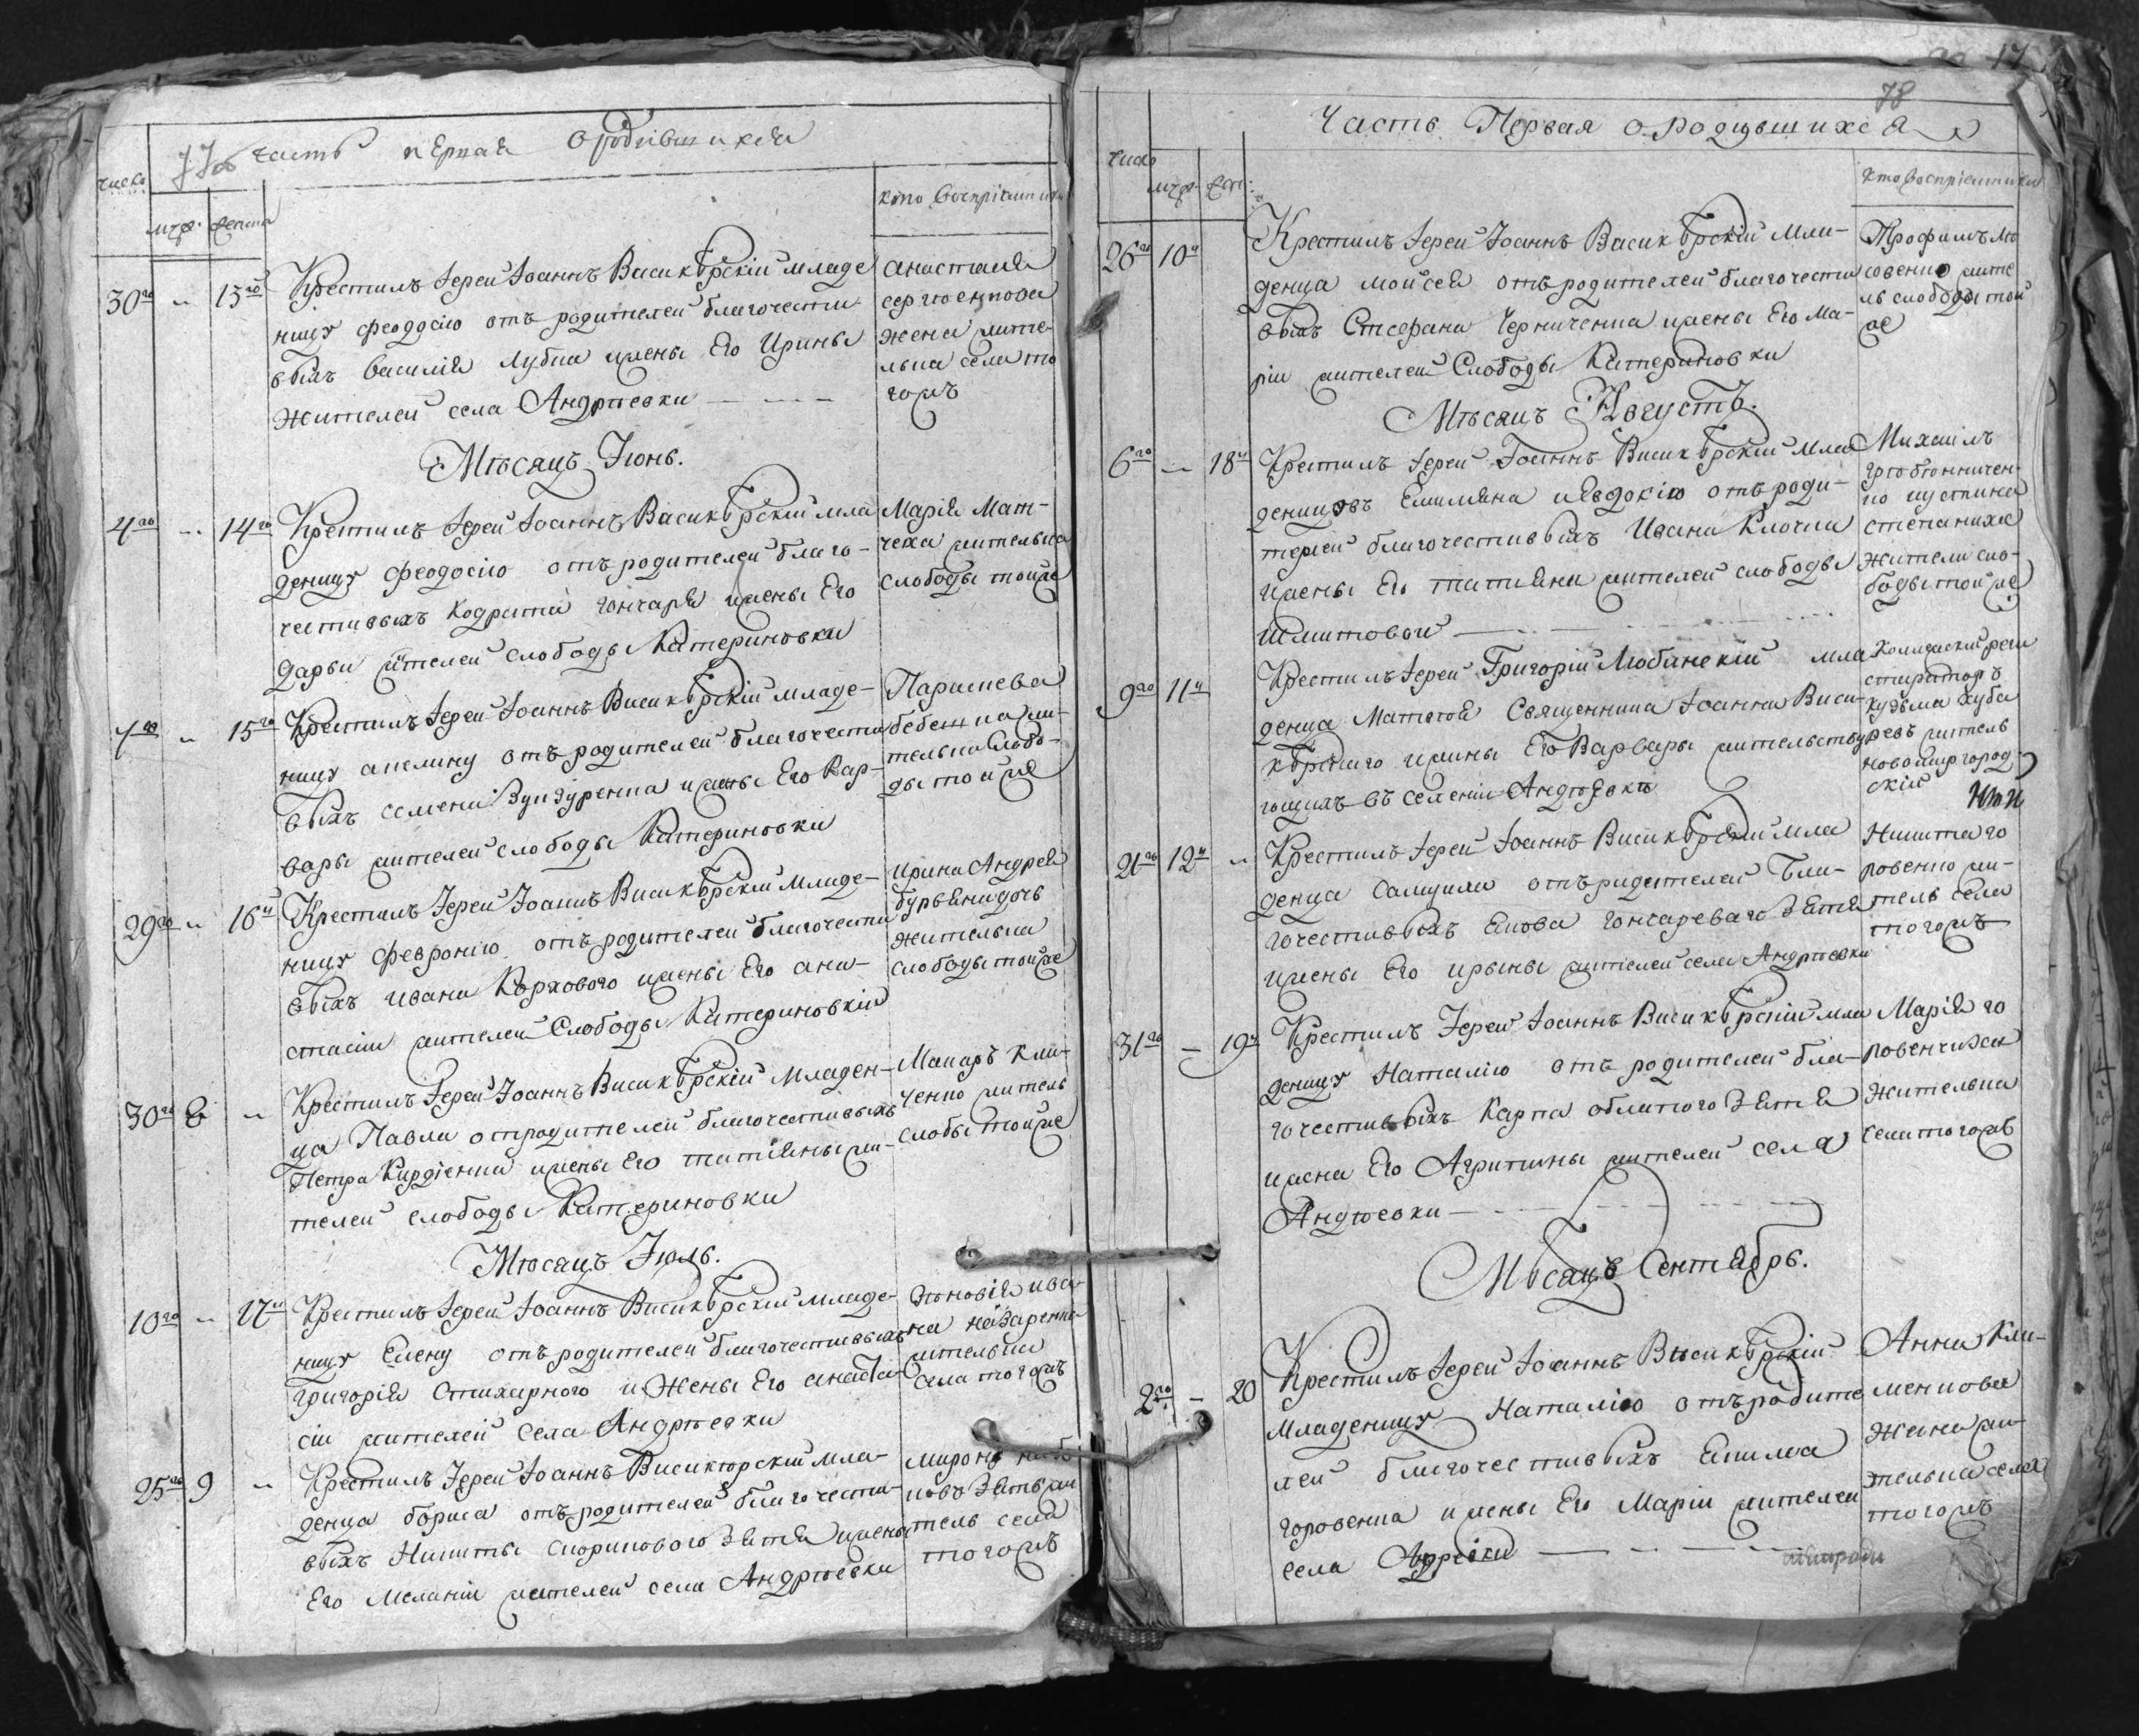 77об часть перная о родившихся
число
муж. женска
кто воспріемники
30го 13го Крестилъ Іерей Іоаннъ Висикѣрскій младе
ницу феодосію отъ родителей благочести
выхъ василія лубна ижены Его Ирины
жителей села Андрѣевки
анастасія
сергіенкова
жена жите
льна села то
гожъ
Мѣсяцъ Іюнь.
4го 14го Крестилъ Іерей Іоаннъ Висикѣрскій мла
деницу феодосію отъ родителей благо-
честивыхъ кодрата гончаря ижены Его
дарьи жителей слободы Катериновки
Марія Мат-
чеха жителька
слободы тойже
15го Крестилъ Іерей Іоаннъ Висикѣрскій младе-
ницу акелину отъ родителей благочести
выхъ семена ижены Его Вар-
вары жителей слободы Катериновки
Параскева
жи-
телька слобо-
ды тойже
29го 16й Крестилъ Іерей Іоаннъ Висикѣрскій младе-
ницу февронію отъ родителей благочести
выхъ ивана Коржового ижены Его ана-
стасіи жителей Слободы Катериновкіи
ирина Андрея
дочь
жителька
слободы тойже
30го 8 Крестилъ Іерей Іоаннъ Висикѣрскій младен-
ца Павла отродителей благочестивыхъ
Петра Кирдіенка ижены Его татіяны жи-
телей слободы Катериновки
Макаръ Кли-
ченко житель
слобы тойже
Мѣсяцъ Іюль.
10го 17й Крестилъ Іерей Іоаннъ Висикѣрскій младе-
ницу Елену отъ родителей благочестивыхъ
Григорія Стихарного и Жены Его анаста
сіи жителей села Андрѣевки
Зѣновія ива
на назаренка
жителька
села тогожъ
25го 9 Крестилъ Іерей Іоаннъ Висикѣрскій мла-
денца бориса отъ родителей благочести-
выхъ Никиты скорикового Зятя ижены
Его Меланіи жителей села Андрѣевки
миронъ
новъ Зять жи
тель села
тогожъ
17
78
Часть Первая о родившихся
число
муж. жен:
кто воспріемники
26го 10й Крестилъ Іерей Іоаннъ Висикѣрскій мла-
денца мойсея отъ родителей благочести
выхъ Стефана Черниченка ижены Его Ма-
ріи жителей Слободы Катериновки
Трофимъ
жите
ль слободы той
же
Мѣсяцъ Августъ.
6го 18й Крестилъ Іерей Іоаннъ Висикѣрскій мла
деницовъ Емиліяна иЕвдокію отъ роди-
телей благочестивыхъ Ивана Клочка
ижены Его татіяни жителей слободы
Шлитовой
Михаилъ
гребѣнничен-
ко иустина
степаниха
жители сло-
боды тойже
9го 11й Крестилъ Іерей Григорій Любинскій мла
денца Матѳея Священника Іоанна Виси-
кѣрского ижены Его Варвары жительству
ющихъ въ селеніи Андрѣевки
Колижскій реги
стираторъ
кузьма куба
ревъ житель
новомиргород-
скій
21го 12й Крестилъ Іерей Іоаннъ Висикѣрскій мла
денца Самуила отъ родителей бла-
гочестивыхъ Екова Гончаревого Зятя
ижены Его ирыны жителей села Андрѣевки
Никита го
ровенко жи-
тель села
тогожъ
31го 19й Крестилъ Іерей Іоаннъ Висикѣрскій мла
деницу Наталію отъ родителей бла-
гочестивыхъ Карпа облитого Зятя
ижена Его Агрипины жителей села
Андрѣевки
Марія го
ровенчиха
Жителька
села тогожъ
Мѣсяцъ Сентябрь.
2го 20 Крестилъ Іерей Іоаннъ Висикѣрскій
Младеницу Наталію отъ родите
лей благочестивыхъ Екима
горовенка ижены Его Маріи жителей
села Адревки
Анна Кли-
менкова
жена жи-
телька села
тогожъ